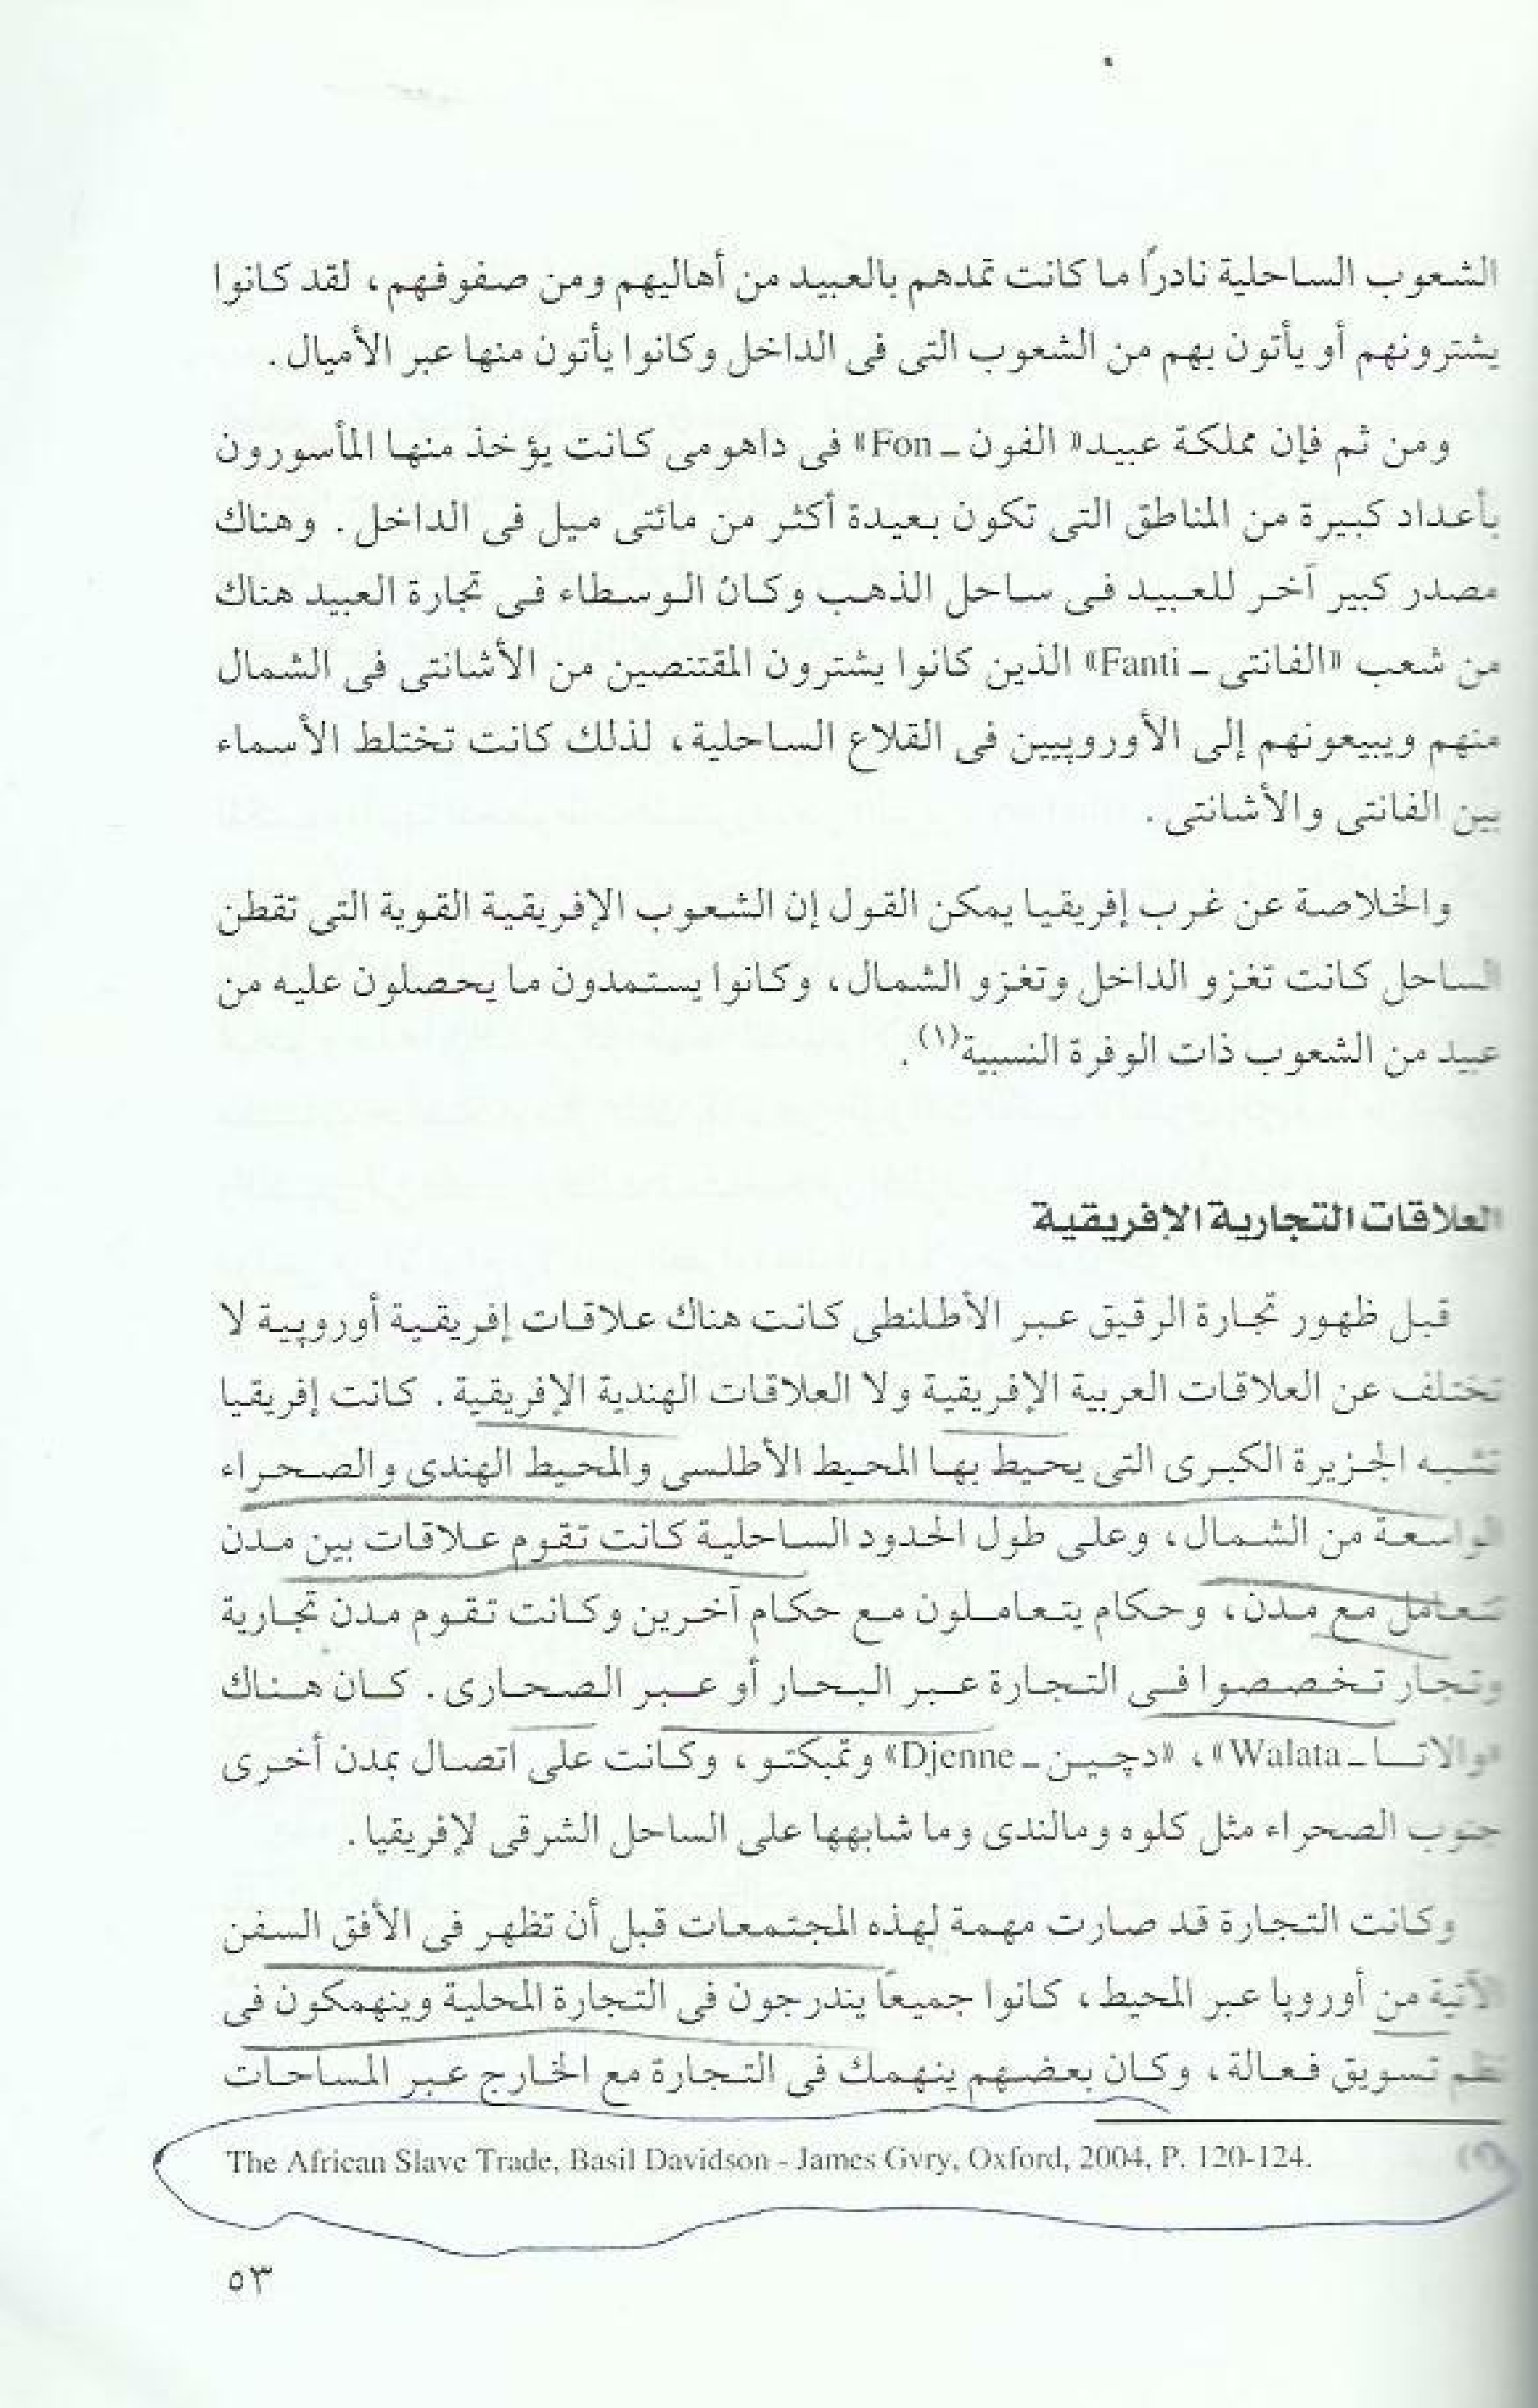 الشعوب الساحلية نادرًا ما كانت تمدهم بالعبيد من أهاليهم ومن صفوفهم، لقد كانوا
يشترونهم أو يأتون بهم من الشعوب التى فى الداخل وكانوا يأتون منها عبر الأميال.
ومن ثم فإن مملكة عبيد «الفون ـ Fon» فى داهومى كانت يؤخذ منها المأسورون
بأعداد كبيرة من المناطق التى تكون بعيدة أكثر من مائتى ميل فى الداخل. وهناك
مصدر كبير آخر للعبيد فى ساحل الذهب وكان الوسطاء فى تجارة العبيد هناك
من شعب «الفانتى ـ Fanti» الذين كانوا يشترون المقتنصين من الأشانتى فى الشمال
منهم ويبيعونهم إلى الأوروبيين فى القلاع الساحلية، لذلك كانت تختلط الأسماء
بين الفانتى والأشانتى.
والخلاصة عن غرب إفريقيا يمكن القول إن الشعوب الإفريقية القوية التى تقطن
الساحل كانت تغزو الداخل وتغزو الشمال، وكانوا يستمدون ما يحصلون عليه من
عبيد من الشعوب ذات الوفرة النسبية(١).
العلاقات التجارية الإفريقية
قبل ظهور تجارة الرقيق عبر الأطلنطى كانت هناك علاقات إفريقية أوروبية لا
تختلف عن العلاقات العربية الإفريقية ولا العلاقات الهندية الإفريقية. كانت إفريقيا
تشبه الجزيرة الكبرى التى يحيط بها المحيط الأطلسى والمحيط الهندى والصحراء
الواسعة من الشمال، وعلى طول الحدود الساحلية كانت تقوم علاقات بين مدن
تتعامل مع مدن، وحكام يتعاملون مع حكام آخرين وكانت تقوم مدن تجارية
وتجار تخصصوا فى التجارة عبر البحار أو عبر الصحارى. كان هناك
«والاتا ـ Walata»، «دچين ـ Djenne» وتمبكتو، وكانت على اتصال بمدن أخرى
جنوب الصحراء مثل كلوه ومالندى وما شابهها على الساحل الشرقى لإفريقيا.
وكانت التجارة قد صارت مهمة لهذه المجتمعات قبل أن تظهر فى الأفق السفن
الآتية من أوروبا عبر المحيط، كانوا جميعًا يندرجون فى التجارة المحلية وينهمكون فى
نظم تسويق فعالة، وكان بعضهم ينهمك فى التجارة مع الخارج عبر المساحات
(١) The African Slave Trade, Basil Davidson - James Gvry, Oxford, 2004, P. 120-124.
٥٣